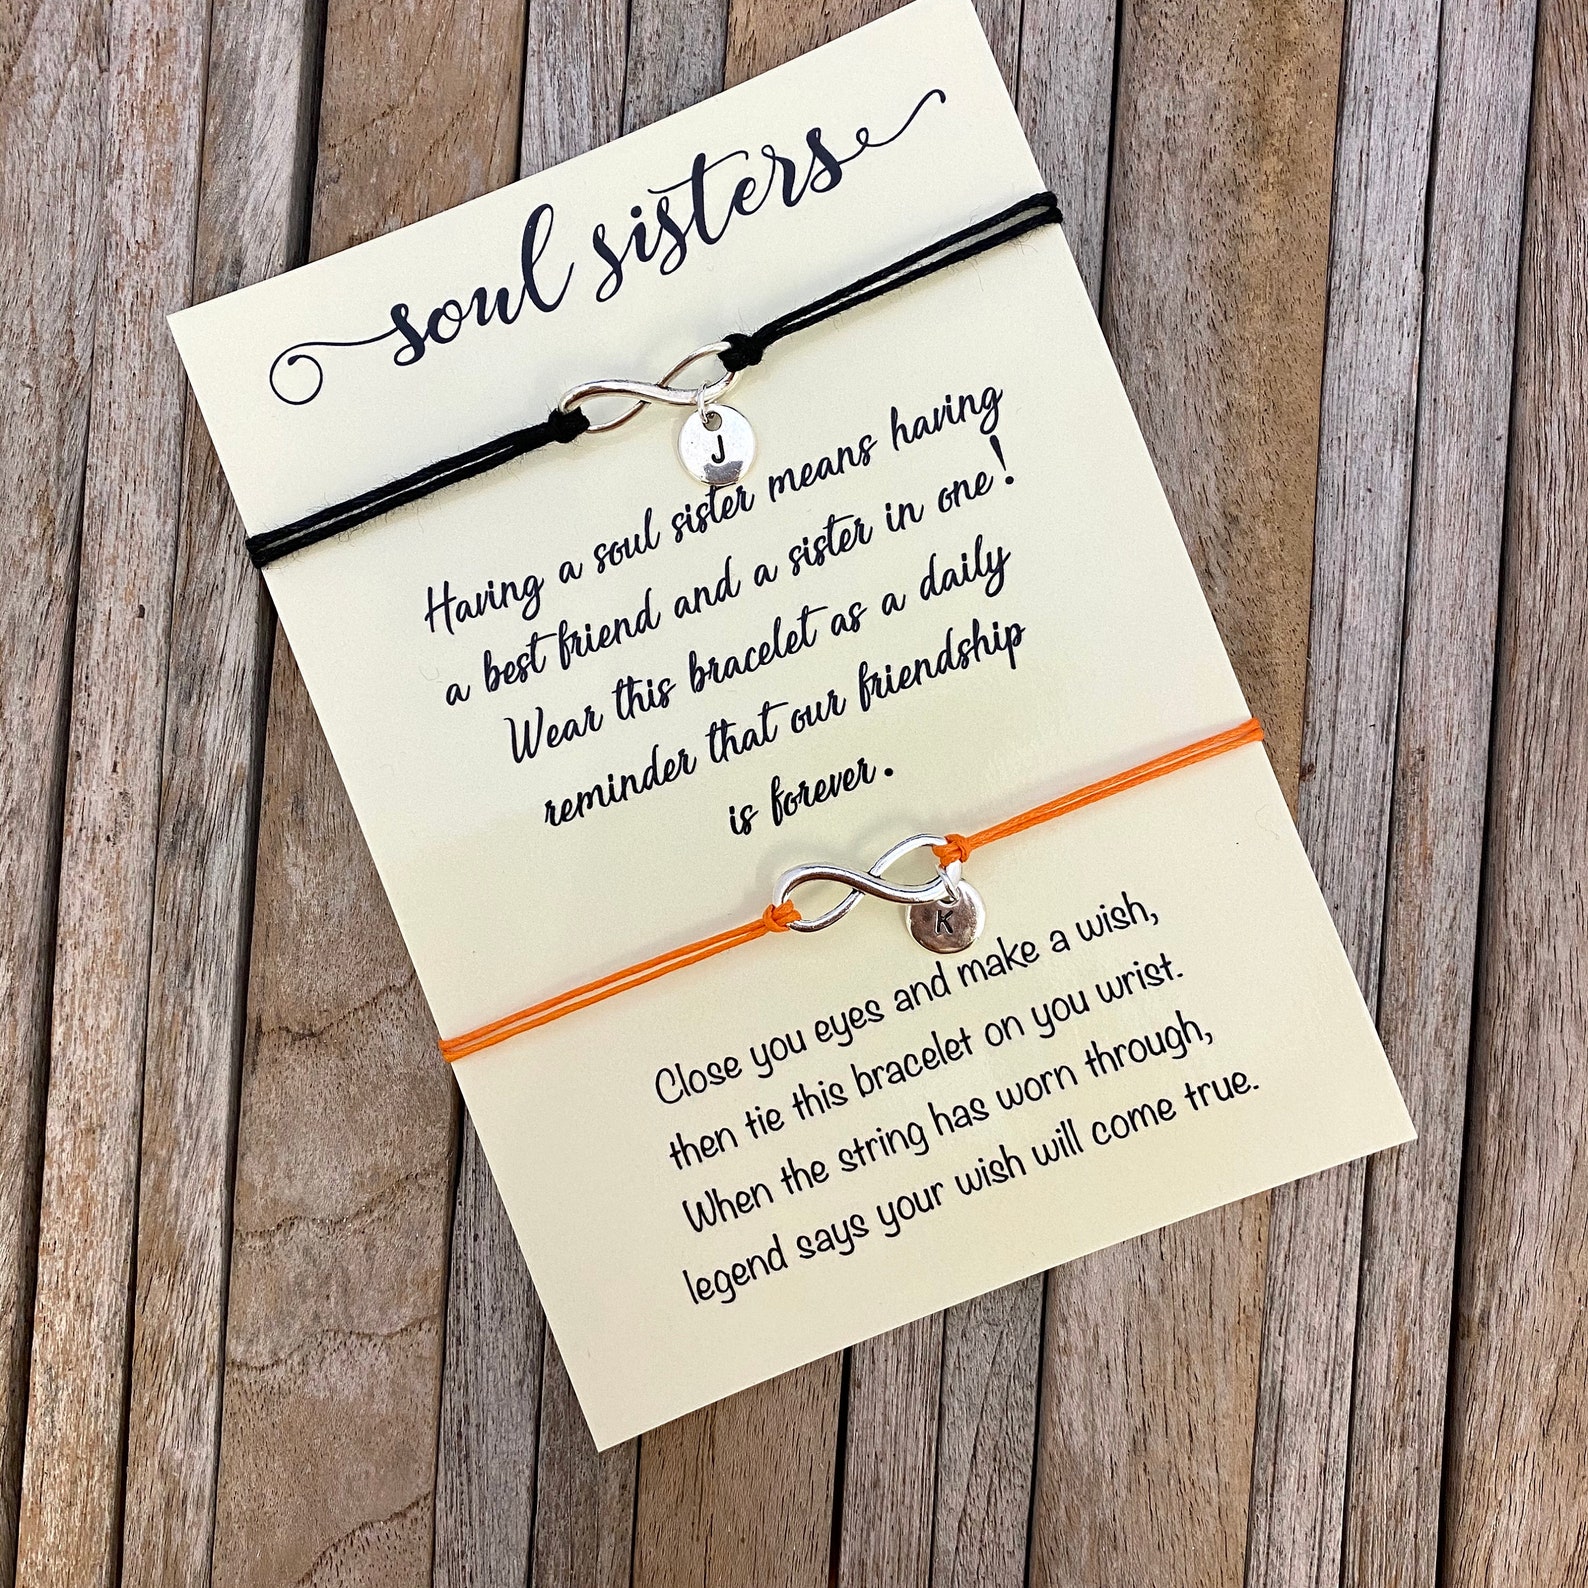 soul sisters
J
Having a soul sister means having
a best friend and a sister in one!
Wear this bracelet as a daily
reminder that our friendship
is forever.
K
Close you eyes and make a wish,
then tie this bracelet on you wrist.
When the string has worn through,
legend says your wish will come true.